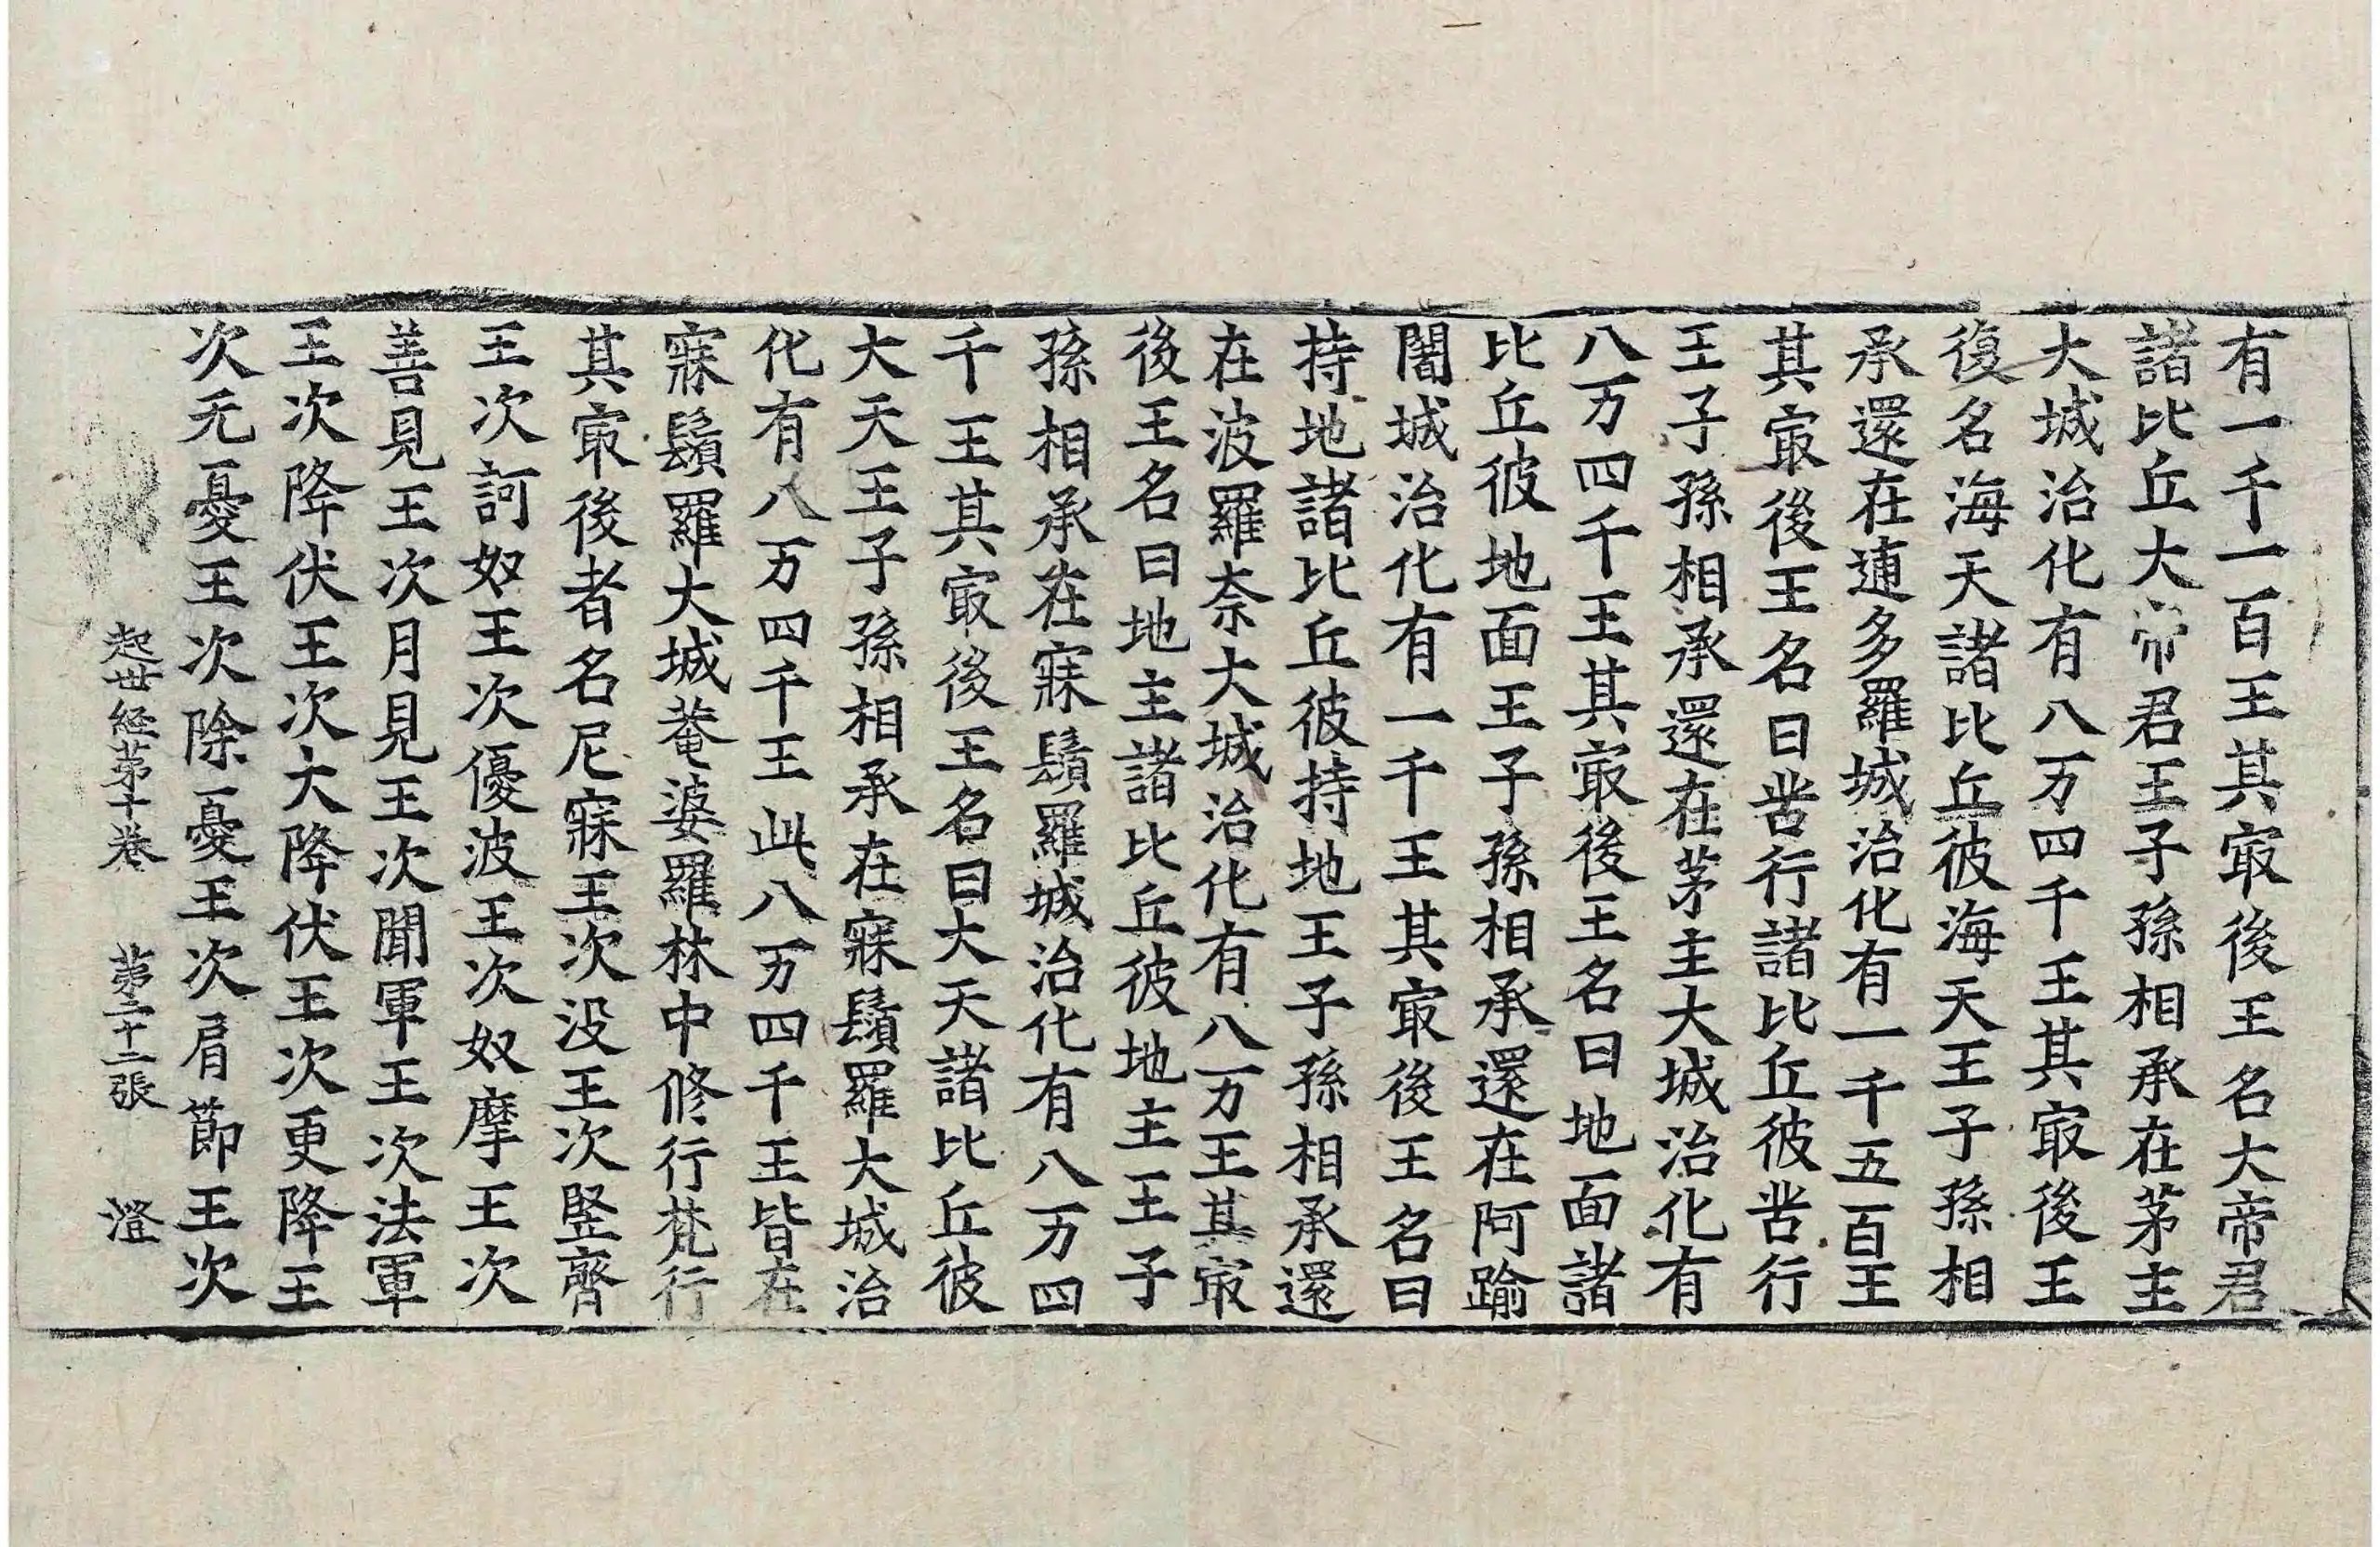 有一千一百王其㝡後王名大帝君
諸比丘大帝君王子孫相承在茅主
大城治化有八万四千王其㝡後王
復名海天諸比丘彼海天王子孫相
承還在逋多羅城治化有一千五百王
其㝡後王名曰苦行諸比丘彼苦行
王子孫相承還在茅主大城治化有
八万四千王其㝡後王名曰地面諸
比丘彼地面王子孫相承還在阿踰
闍城治化有一千王其㝡後王名曰
持地諸比丘彼持地王子孫相承還
在波羅奈大城治化有八万王其㝡
後王名曰地主諸比丘彼地主王子
孫相承在寐鬚羅城治化有八万四
千王其㝡後王名曰大天諸比丘彼
大天王子孫相承在寐鬚羅大城治
化有八万四千王此八万四千王皆在
寐鬚羅大城菴婆羅林中修行梵行
其㝡後者名尼寐王次没王次竪齊
王次訶奴王次優波王次奴摩王次
善見王次月見王次聞軍王次法軍
王次降伏王次大降伏王次更降王
次无憂王次除憂王次肩節王次
起世経苐十卷 苐二十二張 澄